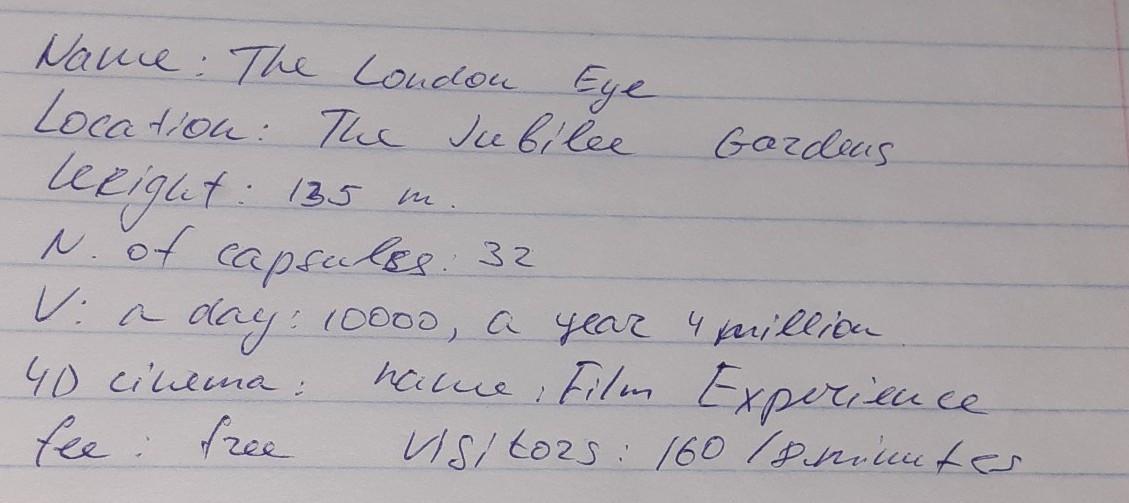 Name: The London Eye
Location: The Jubilee Gardens
Height: 135 m.
N. of capsules: 32
V: a day: 10000, a year 4 million
4D cinema: name: Film Experience
fee: free visitors: 160 / 8 minutes